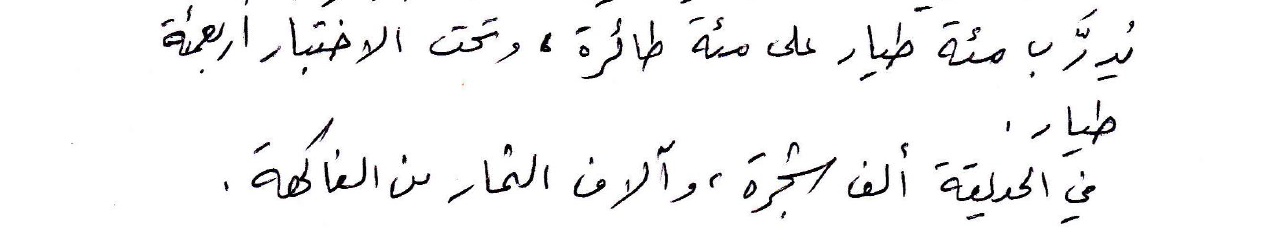 يُدرَّب مئة طيار على مئة طائرة، وتحت الاختبار أربعمئة
طيار.
في الحديقة ألف شجرة، وآلاف الثمار من الفاكهة.